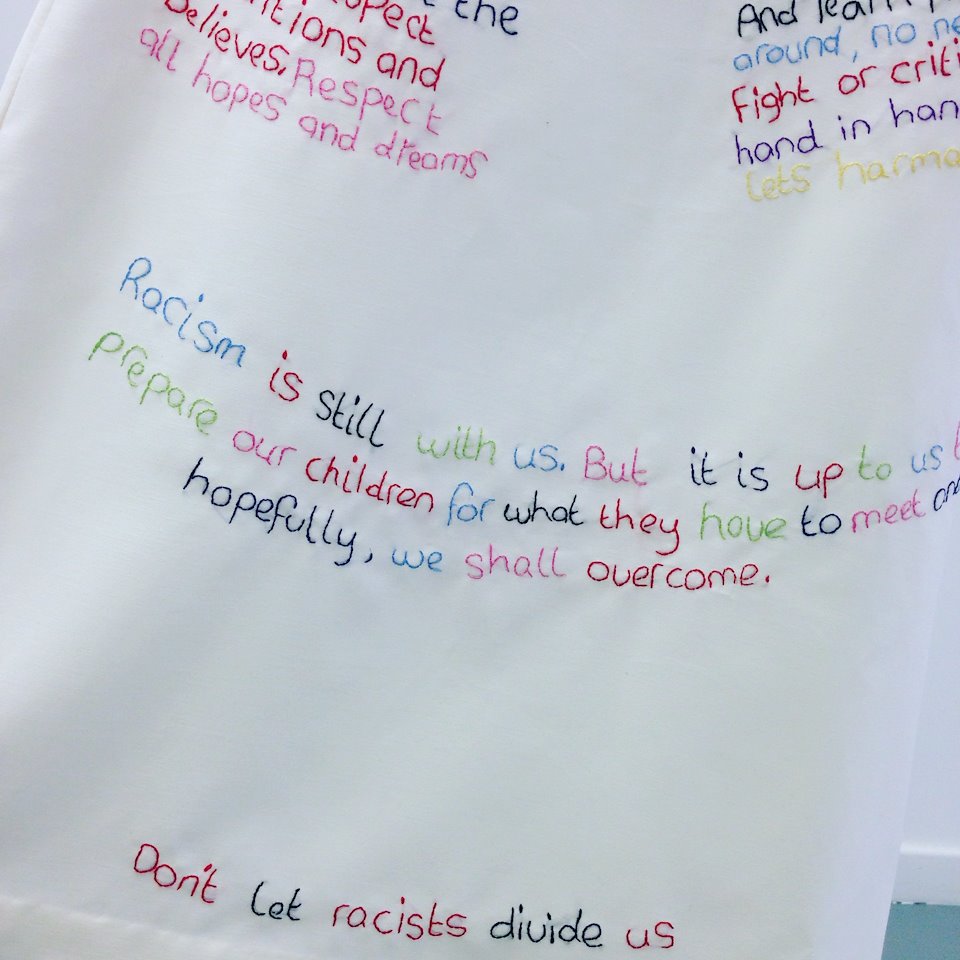 the
believes. Respect
all hopes and dreams
And
around, no
Fight or
hand in
lets
Racism is still with us. But it is up to us
prepare our children for what they have to meet and
hopefully, we shall overcome.
Don't let racists divide us